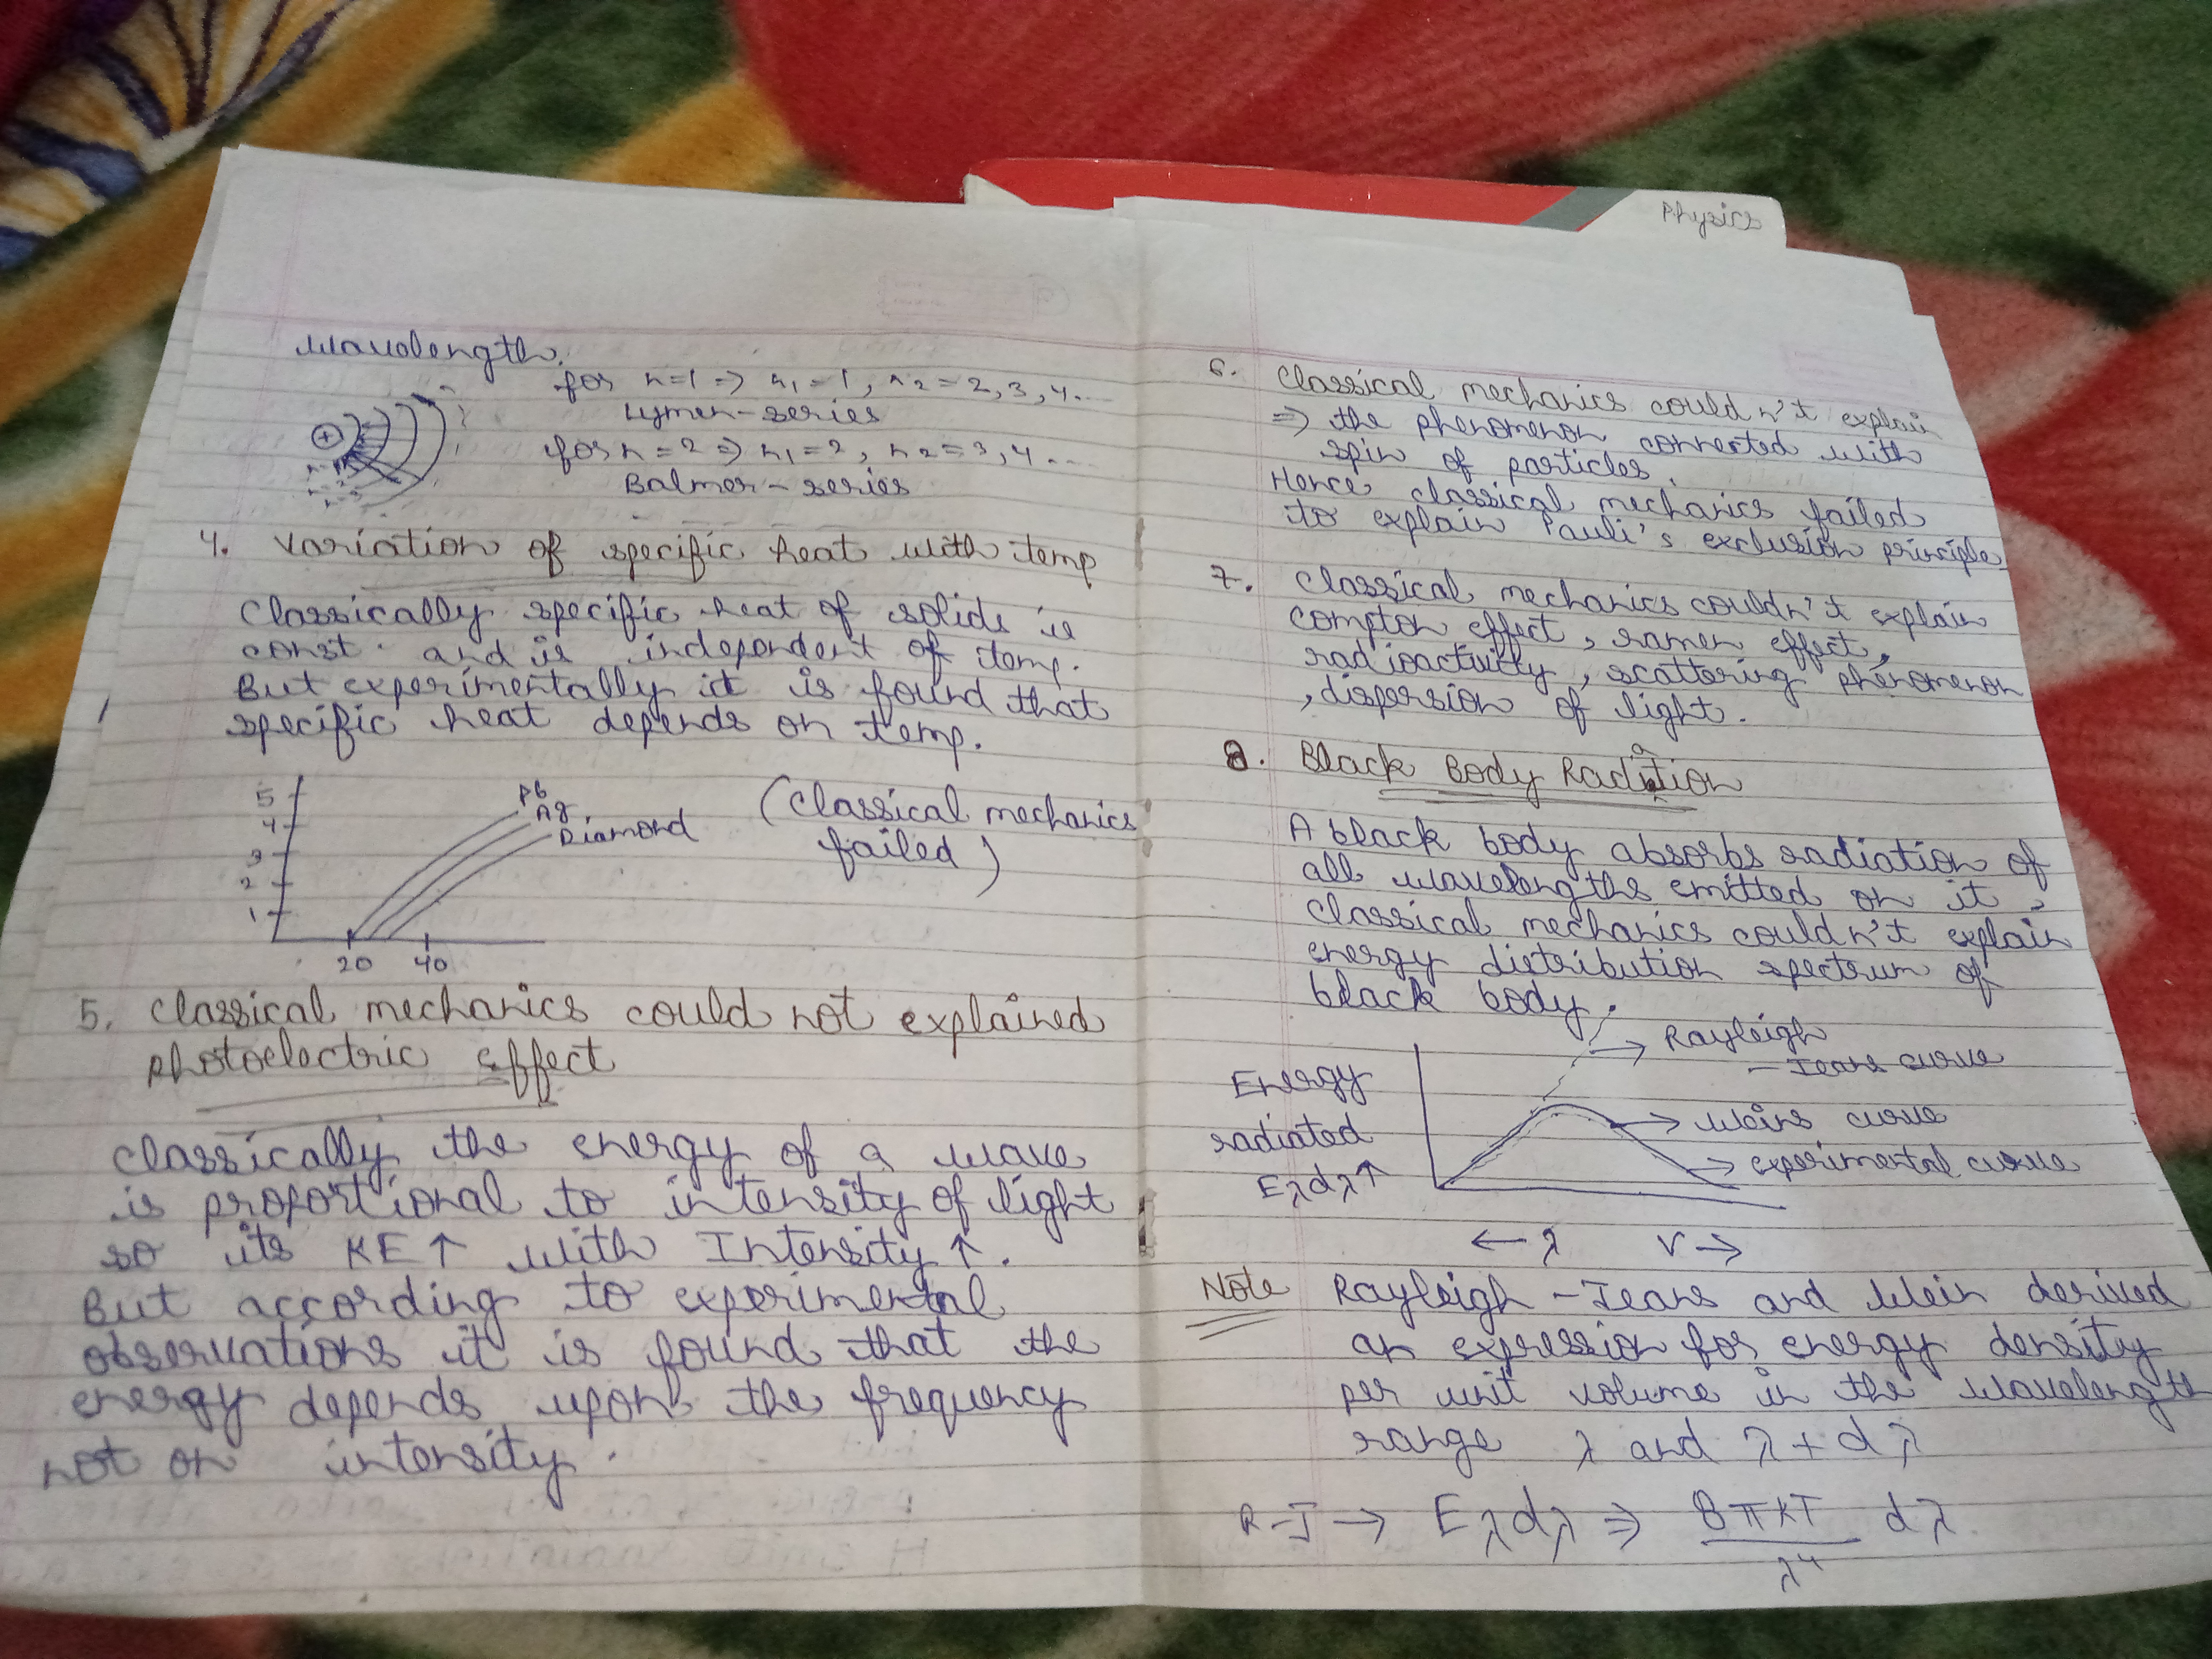 Physics
wavelength.
for n=1 => n₁=1, n₂=2,3,4...
Lymen-series
for n=2 => n₁=2, n₂=3,4...
Balmer-series
4. Variation of specific heat with temp
Classically specific heat of solids is
const. and is independent of temp.
But experimentally it is found that
specific heat depends on temp.
5
4
3
2
1
20 40
Pb
Ag
Diamond
(Classical mechanics
failed)
5. Classical mechanics could not explained
photoelectric effect
Classically the energy of a wave
is proportional to intensity of light
so its KE↑ with Intensity↑.
But according to experimental
observations it is found that the
energy depends upon the frequency
not on intensity.
6. Classical mechanics couldn't explain
=> the phenomenon connected with
spin of particles.
Hence classical mechanics failed
to explain Pauli's exclusion principle.
7. Classical mechanics couldn't explain
compton effect, ramen effect,
radioactivity, scattering phenomenon
, dispersion of light.
8. Black Body Radiation
A black body absorbs radiation of
all wavelengths emitted on it,
classical mechanics couldn't explain
energy distribution spectrum of
black body.
→ Rayleigh
- Jeans curve
Energy
radiated
Eλdλ↑
→ Weins curve
→ experimental curve
← λ ν →
Note Rayleigh - Jeans and Wein derived
an expression for energy density
per unit volume in the wavelength
range λ and λ + dλ
R-J → Eλdλ => 8πKT/λ⁴ dλ